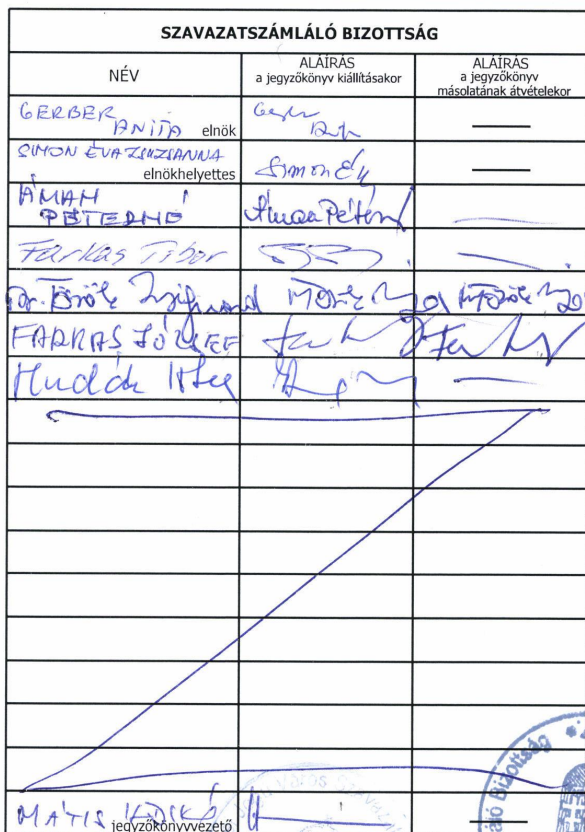 SZAVAZATSZÁMLÁLÓ BIZOTTSÁG
NÉV
ALÁÍRÁS
a jegyzőkönyv kiállításakor
ALÁÍRÁS
a jegyzőkönyv
másolatának átvételekor
GERBER
ANITA elnök
SIMON ÉVA ZSUZSANNA
elnökhelyettes
Simon Éva
ÁMAN
PÉTERNÉ
Áman Péterné
Farkas Tibor
Dr. Török Zsigmond
FARKAS JÓZSEF
Hudák
MÁTIS ILDIKÓ
jegyzőkönyvvezető
Bizottság